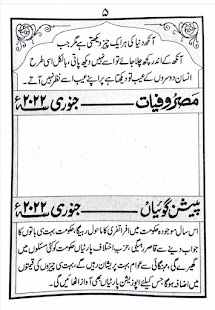 ۵
آنکھ دنیا کی ہر ایک چیز دیکھتی ہے مگر جب
آنکھ کے اندر کچھ چلا جائے تو اسے نہیں دیکھ پاتی، بالکل اسی طرح
انسان دوسروں کے عیب تو دیکھتا ہے پر اپنے عیب اسے نظر نہیں آتے۔
مصروفیات جنوری ۲۰۲۲ء
پیشن گوئیاں جنوری ۲۰۲۲ء
اس سال موجودہ حکومت میں افراتفری کا ماحول رہیگا، حکومت بہت سی باتوں کا
جواب دینے سے قاصر رہیگی، حزب اختلاف پارٹیاں حکومت کو کئی مسئلوں میں
گھیرے گی، مہنگائی سے عوام بہت پریشان رہیں گے، بہت سی چیزوں کی قیمتوں
میں اضافہ ہوگا جس کیلئے اپوزیشن پارٹیاں بھی آواز اٹھائیں گی۔